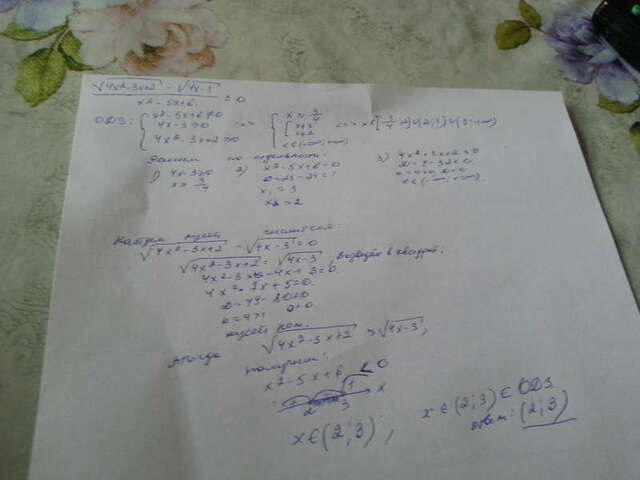 √4x²-3x+2 - √4x-3
x²-5x+6 ≤ 0
ОДЗ: { x²-5x+6≠0 <=> { x ≥ 3/4 <=> x∈[3/4;2)∪(2;3)∪(3;+∞)
4x-3≥0 [ x≠3
4x²-3x+2≥0 x≠2
x∈(-∞;+∞)
Решим по отдельности:
1) 4x-3≥0
x≥ 3/4
2) x²-5x+6=0
D=25-24=1
x₁=3
x₂=2
3) 4x²-3x+2≥0
D=9-32<0,
a=4>0, D<0
x∈(-∞;+∞).
Найдем нули числителя:
√4x²-3x+2 - √4x-3 = 0
√4x²-3x+2 = √4x-3, Возведем в квадрат:
4x²-3x+2-4x+3=0
4x²-7x+5=0.
D=49-80<0
a=4>
нулей нет.
√4x²-3x+2 > √4x-3,
тогда получим:
x²-5x+6 < 0
2 3 x
x∈(2;3),
x∈(2;3)∈ОДЗ.
ответ: (2;3)